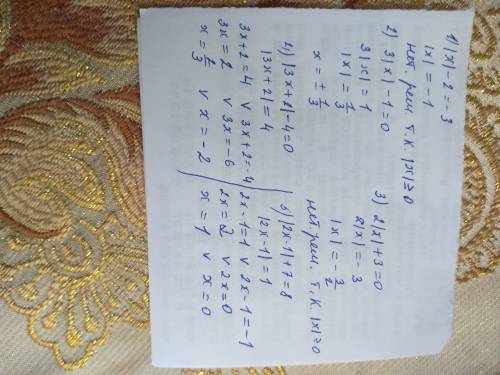 1) |x| - 2 = -3
|x| = -1
нет реш. т.к. |x| ≥ 0
2) 3|x| - 1 = 0
3|x| = 1
|x| = 1/3
x = ± 1/3
3) 2|x| + 3 = 0
2|x| = -3
|x| = -3/2
нет реш. т.к. |x| ≥ 0
4) |3x+2| - 4 = 0
|3x+2| = 4
3x+2 = 4 v 3x+2 = -4
3x = 2 v 3x = -6
x = 2/3 v x = -2
5) |2x-1| + 7 = 8
|2x-1| = 1
2x-1 = 1 v 2x-1 = -1
2x = 2 v 2x = 0
x = 1 v x = 0